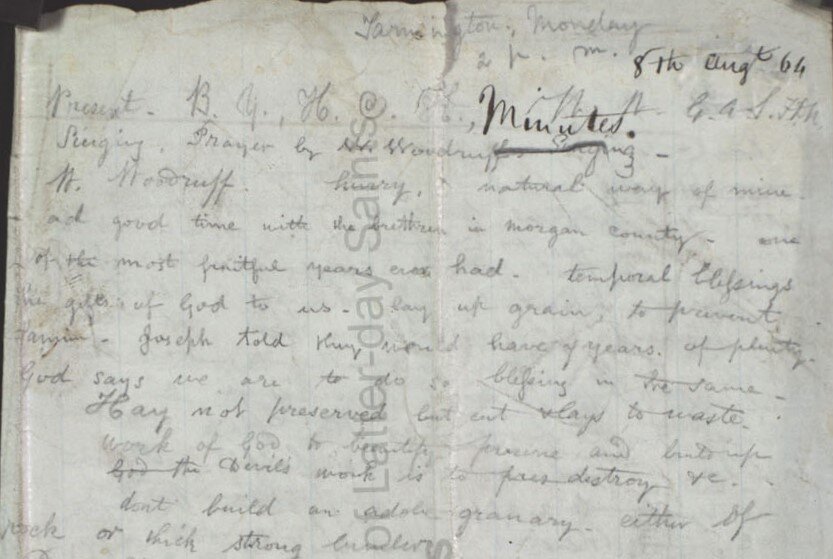 Farmington, Monday
2 p. m.
8th augt 64
Present - B. Y., H. C. K., W. W. G. A. S. F.D.R
Minutes.
Singing. Prayer by W Woodruff. Singing -
W. Woodruff. hurry, natural way of mine.
ad good time with the brethren in morgan county - one
of the most fruitful years ever had. temporal blessings
the gifts of God to us - Lay up grain, to prevent
famine - Joseph told they would have 7 years. of plenty.
God says we are to do so blessing in the same -
Hay not preserved but cut & lays to waste.
work of God to beautify preserve and build up
God the Devils work is to destroy &c. -
dont build an adobe granary - either of
rock or thick strong lumber
of Latter-day Saints©